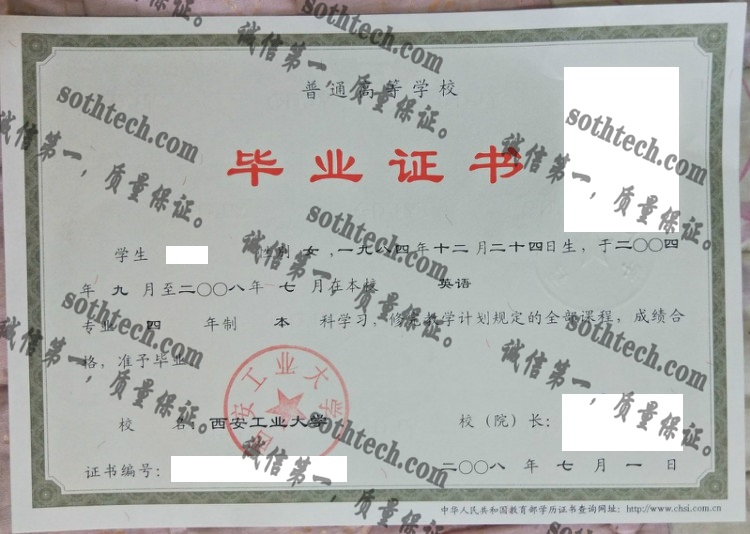 普通高等学校
毕业证书
学生 性别 女 ,一九八四年十二月二十四日生，于二〇〇四
年 九 月至二〇〇八年 七 月在本校 英语
专业 四 年制 本 科学习，修完教学计划规定的全部课程，成绩合
格，准予毕业
校 名 西安工业大学 校（院）长：
证书编号： 二〇〇八 年 七 月 一 日
中华人民共和国教育部学历证书查询网址：http://www.chsi.com.cn
西安工业大学
sothtech.com
诚信第一，质量保证。
sothtech.com
诚信第一，质量保证。
sothtech.com
诚信第一，质量保证。
sothtech.com
诚信第一，质量保证。
sothtech.com
诚信第一，质量保证。
sothtech.com
诚信第一，质量保证。
sothtech.com
诚信第一，质量保证。